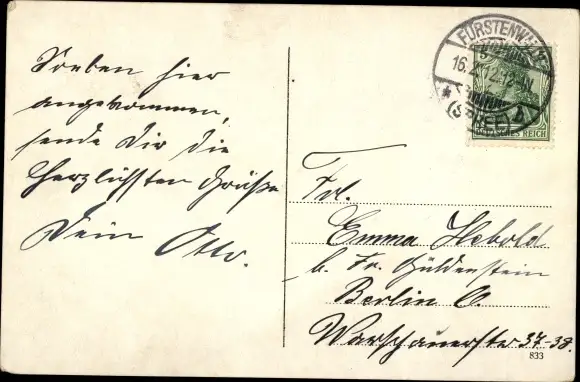 Soeben hier
angekommen,
sende Dir die
herzlichsten Grüße
Dein Otto.
FÜRSTENWA
16.
12
(SPREE)
DEUTSCHES REICH
Frl.
Emma Hebold
b. Fr. Güldenstein
Berlin O.
Warschauerstr 37-38.
833